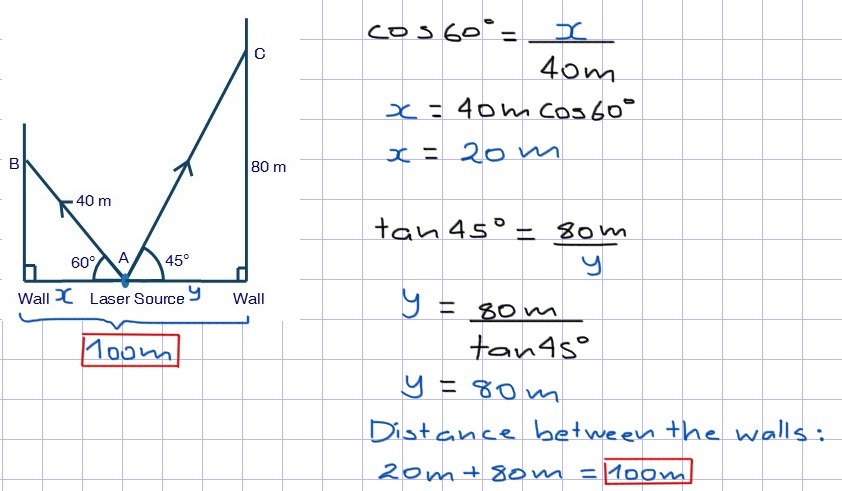 C
B
80 m
40 m
60°
A
45°
Wall x Laser Source y Wall
100m
cos60° = x
40m
x = 40m cos60°
x = 20m
tan45° = 80m
y
y = 80m
tan45°
y = 80m
Distance between the walls:
20m + 80m = 100m